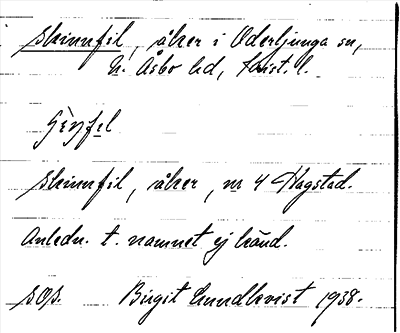 Skinnfil, åker i Oderljunga sn,
N. Åsbo hd, Krist. l.
Skinnfil, åker, nr 4 Hagstad.
Anledn. t. namnet ej känd.
SOS. Birgit Lundkvist 1938.